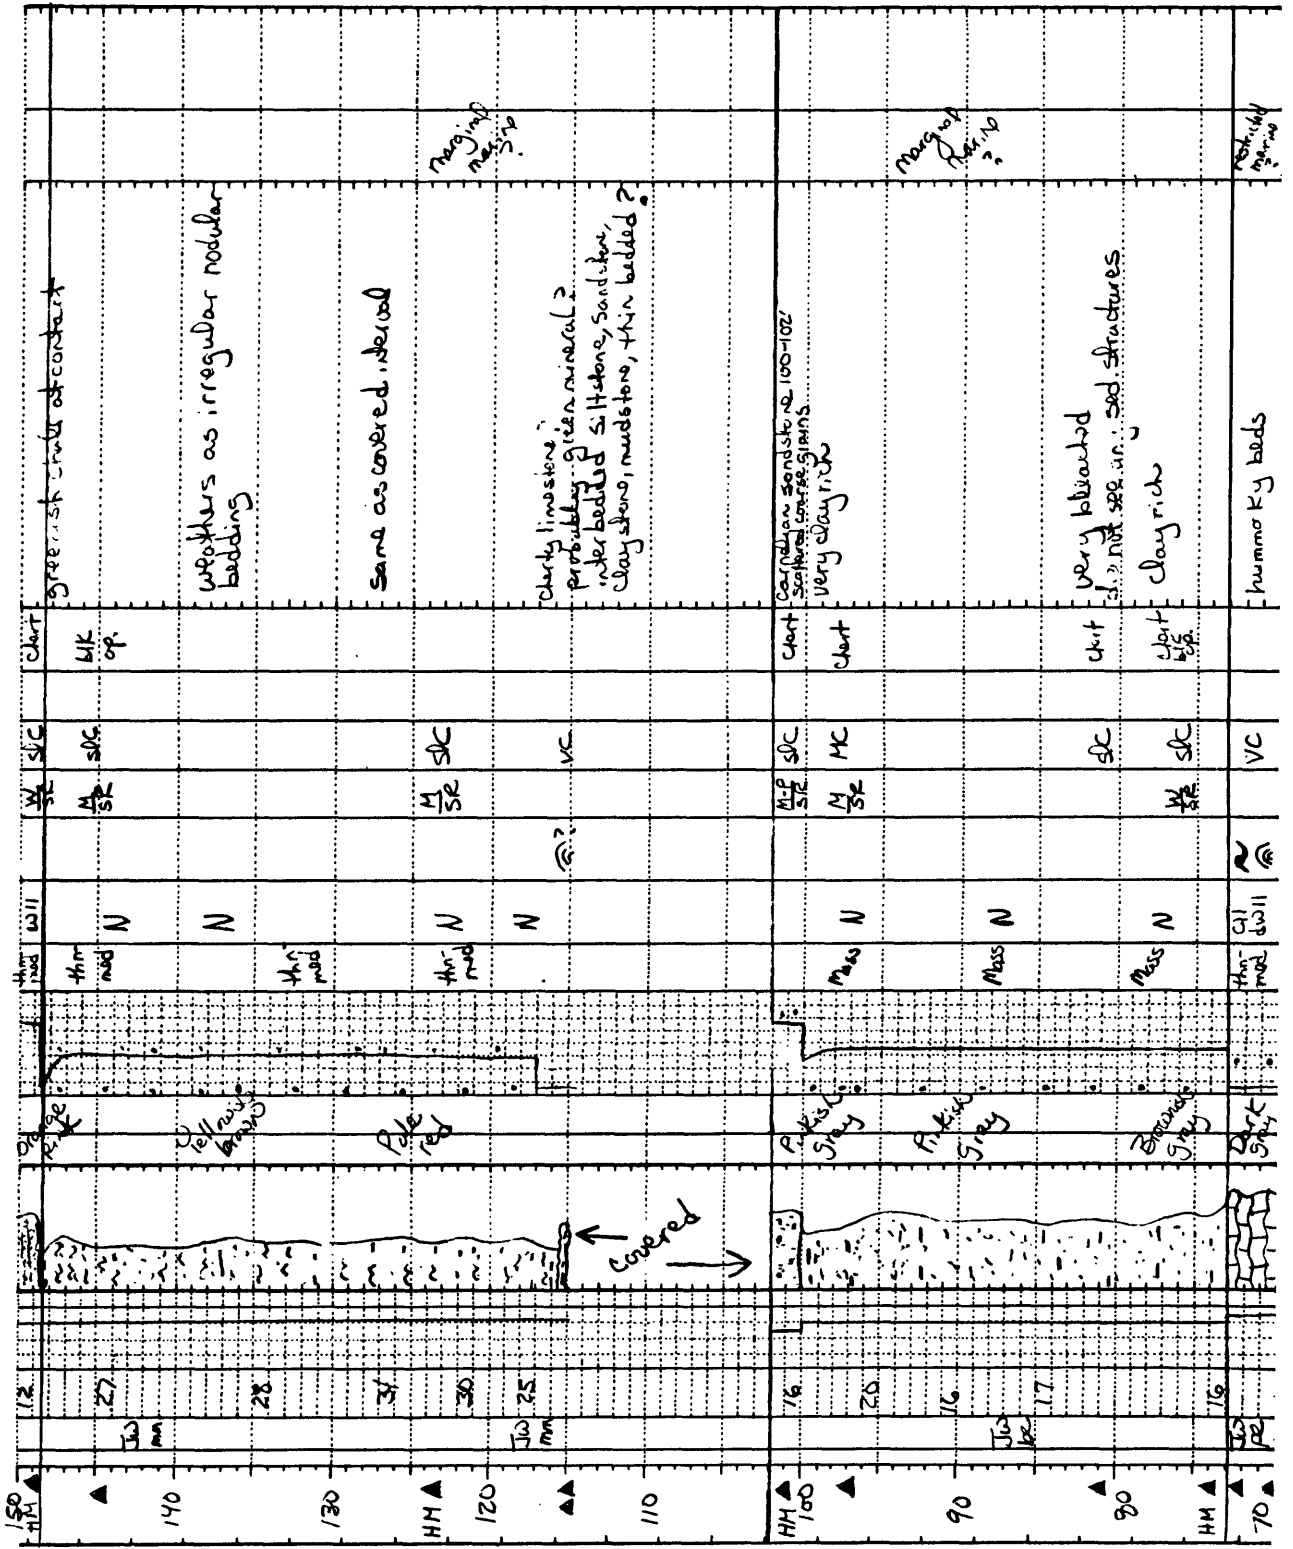 greenish chert at contact
weathers as irregular nodular
bedding
same as covered interval
marginal
marine
?
cherty limestone?
probably green mineral?
interbedded siltstone, sandstone,
claystone, mudstone, thin bedded?
Carnelyan sandstone 100-102'
scattered coarse grains
very clay rich
marginal
marine
?
very bleached
do not see any sed structures
clay rich
restricted
marine
?
hummoky beds
chert
blk
op.
chert
chert
chert
chert
blk
op.
slc
slc
slc
VC
slc
MC
slc
slc
VC
W
SR
M
SR
M
SR
M-P
SR
M
SR
W
SR
?
WII
N
N
N
N
N
N
N
GI
WII
thn-
med
thn-
med
thn-
med
thn-
med
Mass
Mass
Mass
thn-
med
Orange
Pink
Yellowish
brown
Pale
red
Pinkish
gray
Pinkish
gray
Brownish
gray
Dark
gray
Covered
12
27
28
31
30
25
16
20
16
17
16
Jw
mn
Jw
mn
Jw
bc
Jw
pc
150
HM
140
130
HM
120
110
HM
100
90
80
HM
70